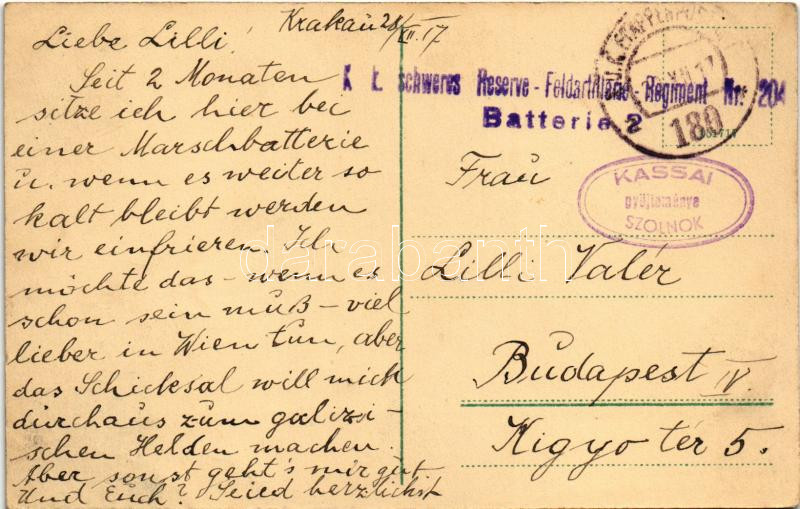 Krakau 28/XII.17
Liebe Lilli!
Seit 2 Monaten
sitze ich hier bei
einer Marschbatterie
u. wenn es weiter so
kalt bleibt werden
wir einfrieren. Ich
möchte das – wenn es
schon sein muß – viel
lieber in Wien tun, aber
das Schicksal will mich
durchaus zum galizi-
schen Helden machen.
Aber sonst geht's mir gut
Und Euch? Seied herzlichst
K. k. schweres Reserve-Feldartillerie-Regiment Nr. 204
Batterie 2
K.u.K. ETAPPENPOST
XII 17
180
KASSAI
gyűjteménye
SZOLNOK
Frau
Lilli Valér
Budapest IV.
Kigyo tér 5.
darabanth.com